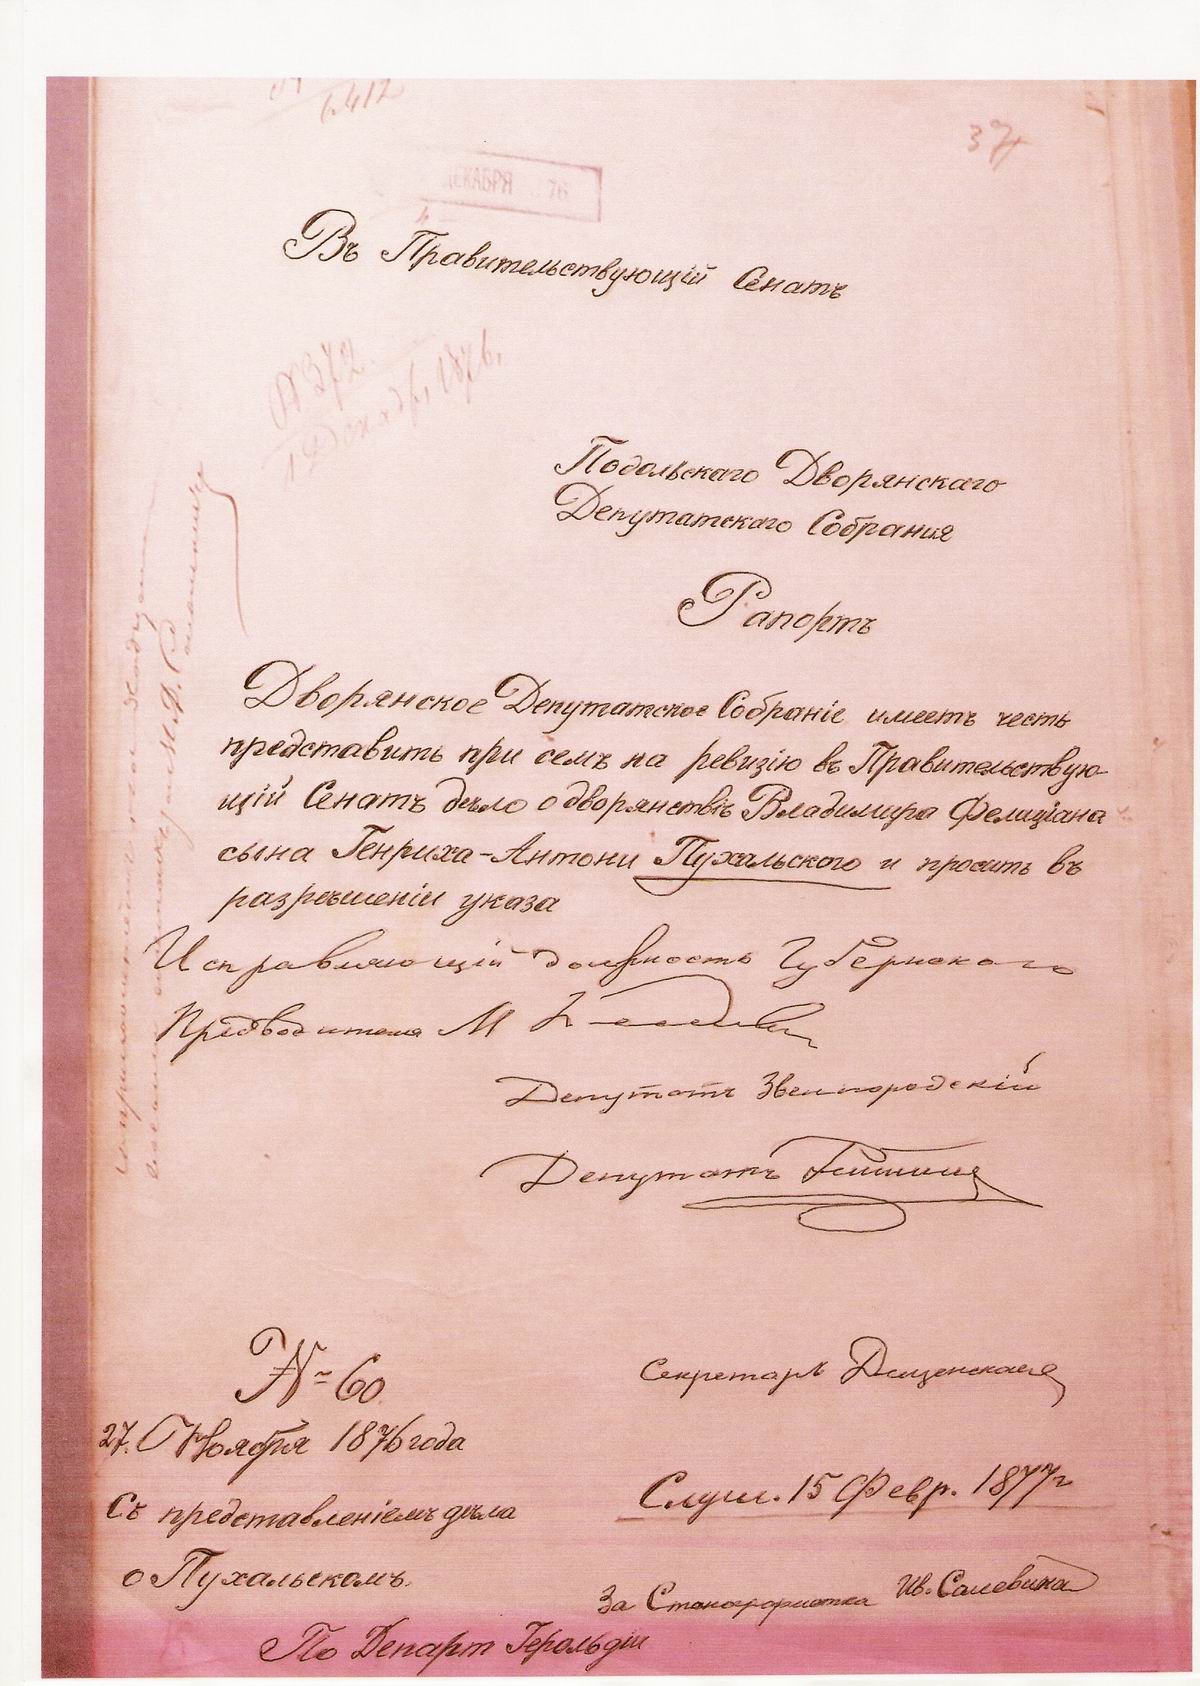 1412
37
ДЕКАБРЯ 76
Въ Правительствующій Сенатъ
№ 372
19 Декабр. 1876.
Подольскаго Дворянскаго
Депутатскаго Собрания
Рапортъ
Дворянское Депутатское Собраніе имеетъ честь
представить при семъ на ревизію въ Правительствую-
щій Сенатъ дѣло о дворянствѣ Владимира Фелиціана
сына Генриха-Антони Пухальского и просить въ
разрѣшеніи указа
Исправляющій должность Губернского
Предводителя М
Депутатъ Звенигородскій
Депутатъ
№ 60
27. Ноября 1876 года
Съ представленіемъ дѣла
о Пухальскомъ.
По Департ Герольдіи
Секретарь
Слуш. 15 Февр. 1877 г
За Ив.